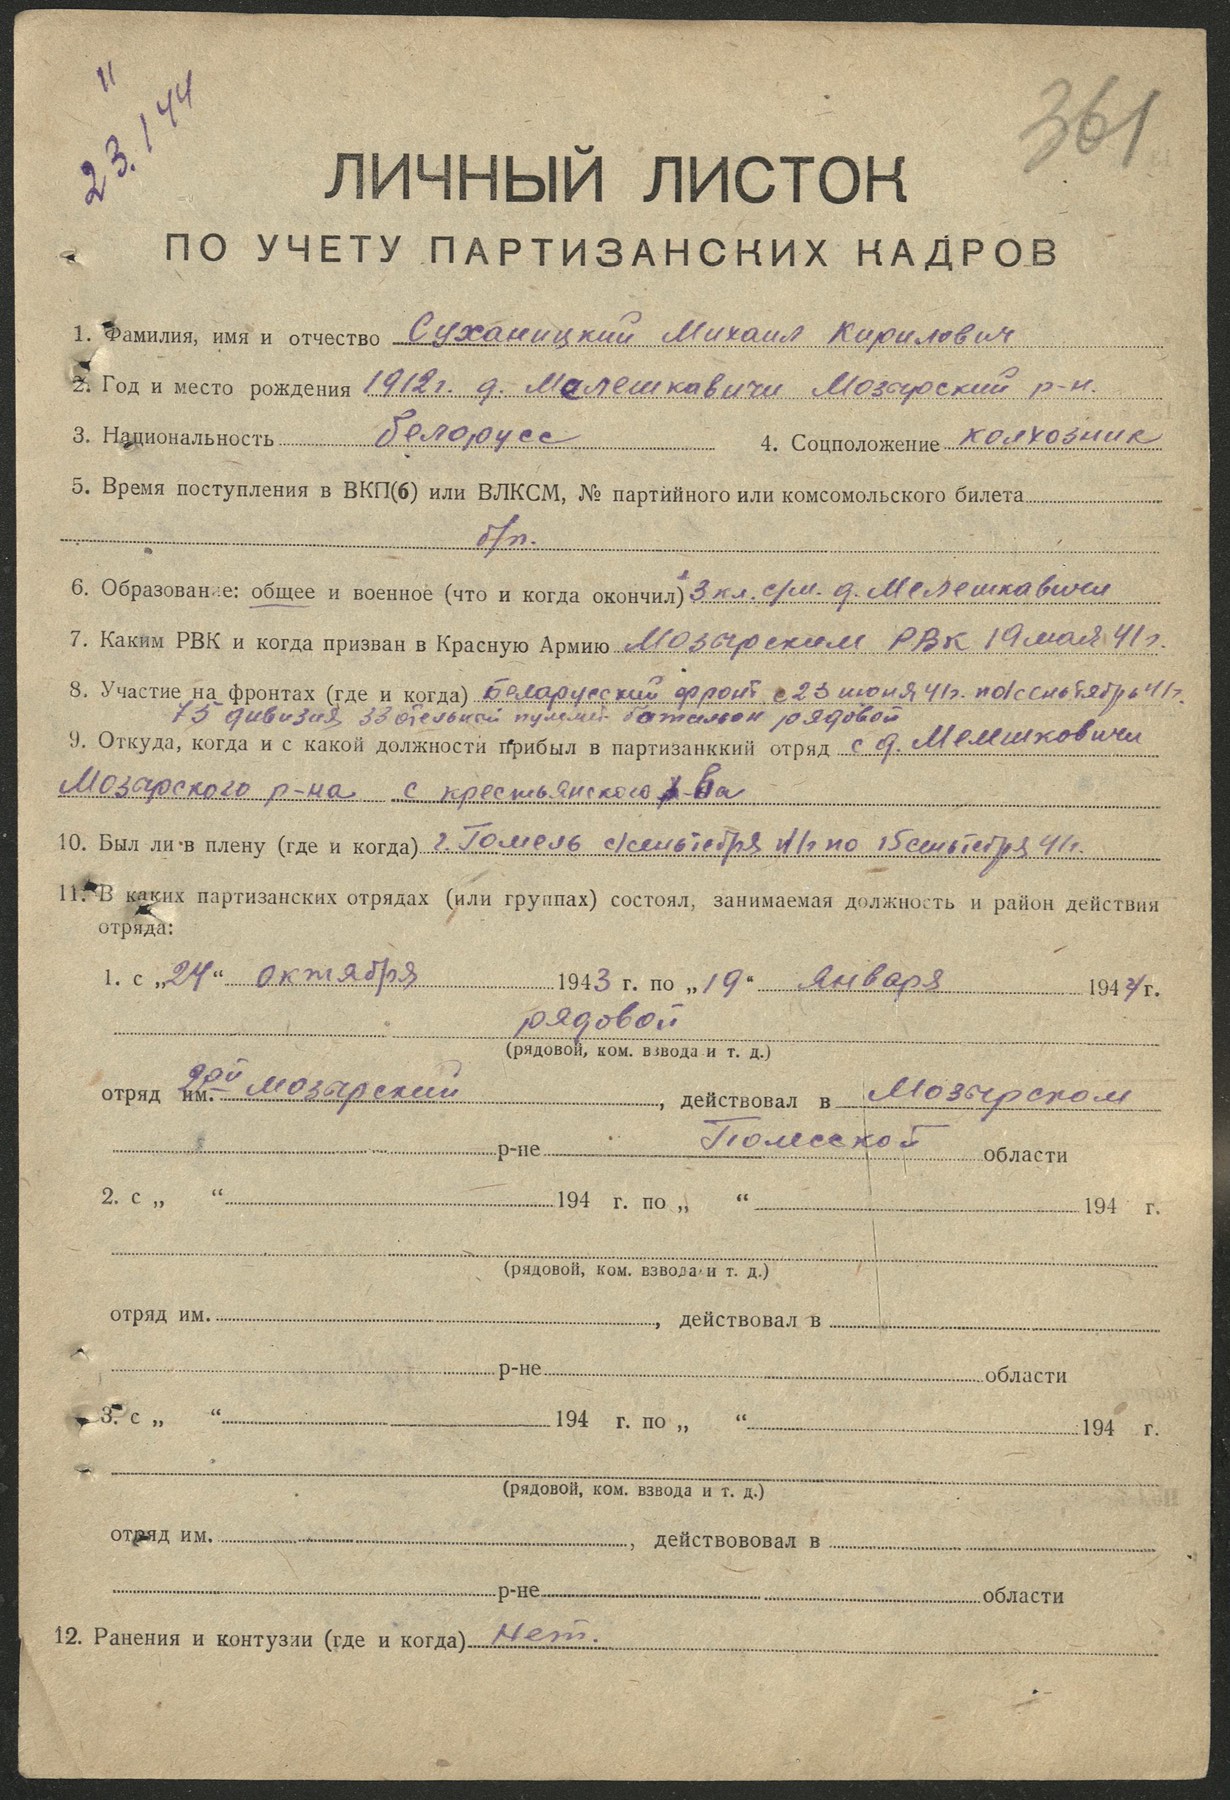 "
23.1 44
361
ЛИЧНЫЙ ЛИСТОК
ПО УЧЕТУ ПАРТИЗАНСКИХ КАДРОВ
1. Фамилия, имя и отчество Суханицкий Михаил Кирилович
2. Год и место рождения 1912г. д. Мелешкавичи Мозырский р-н.
3. Национальность белорусс 4. Соцположение колхозник
5. Время поступления в ВКП(б) или ВЛКСМ, № партийного или комсомольского билета
б/п.
6. Образование: общее и военное (что и когда окончил) 3 кл. с/ш. д. Мелешкавичи
7. Каким РВК и когда призван в Красную Армию Мозырским РВК 19 мая 41г.
8. Участие на фронтах (где и когда) Беларусский фронт с 23 июня 41г. по 1 сентября 41г.
75 дивизия 33 батальон рядовой
9. Откуда, когда и с какой должности прибыл в партизанккий отряд с д. Мелешковичи
Мозырского р-на с крестьянского х-ва
10. Был ли в плену (где и когда) г. Гомель с 1 сентебря 41г по 15 сентебря 41г.
11. В каких партизанских отрядах (или группах) состоял, занимаемая должность и район действия
отряда:
1. с „24“ октября 1943 г. по „19“ января 1944 г.
рядовой
(рядовой, ком. взвода и т. д.)
отряд им. 2ой Мозырский, действовал в Мозырском
р-не Полесской области
2. с „ “ 194 г. по „ “ 194 г.
(рядовой, ком. взвода и т. д.)
отряд им. , действовал в
р-не области
3. с „ “ 194 г. по „ “ 194 г.
(рядовой, ком. взвода и т. д.)
отряд им. , действововал в
р-не области
12. Ранения и контузии (где и когда) Нет.